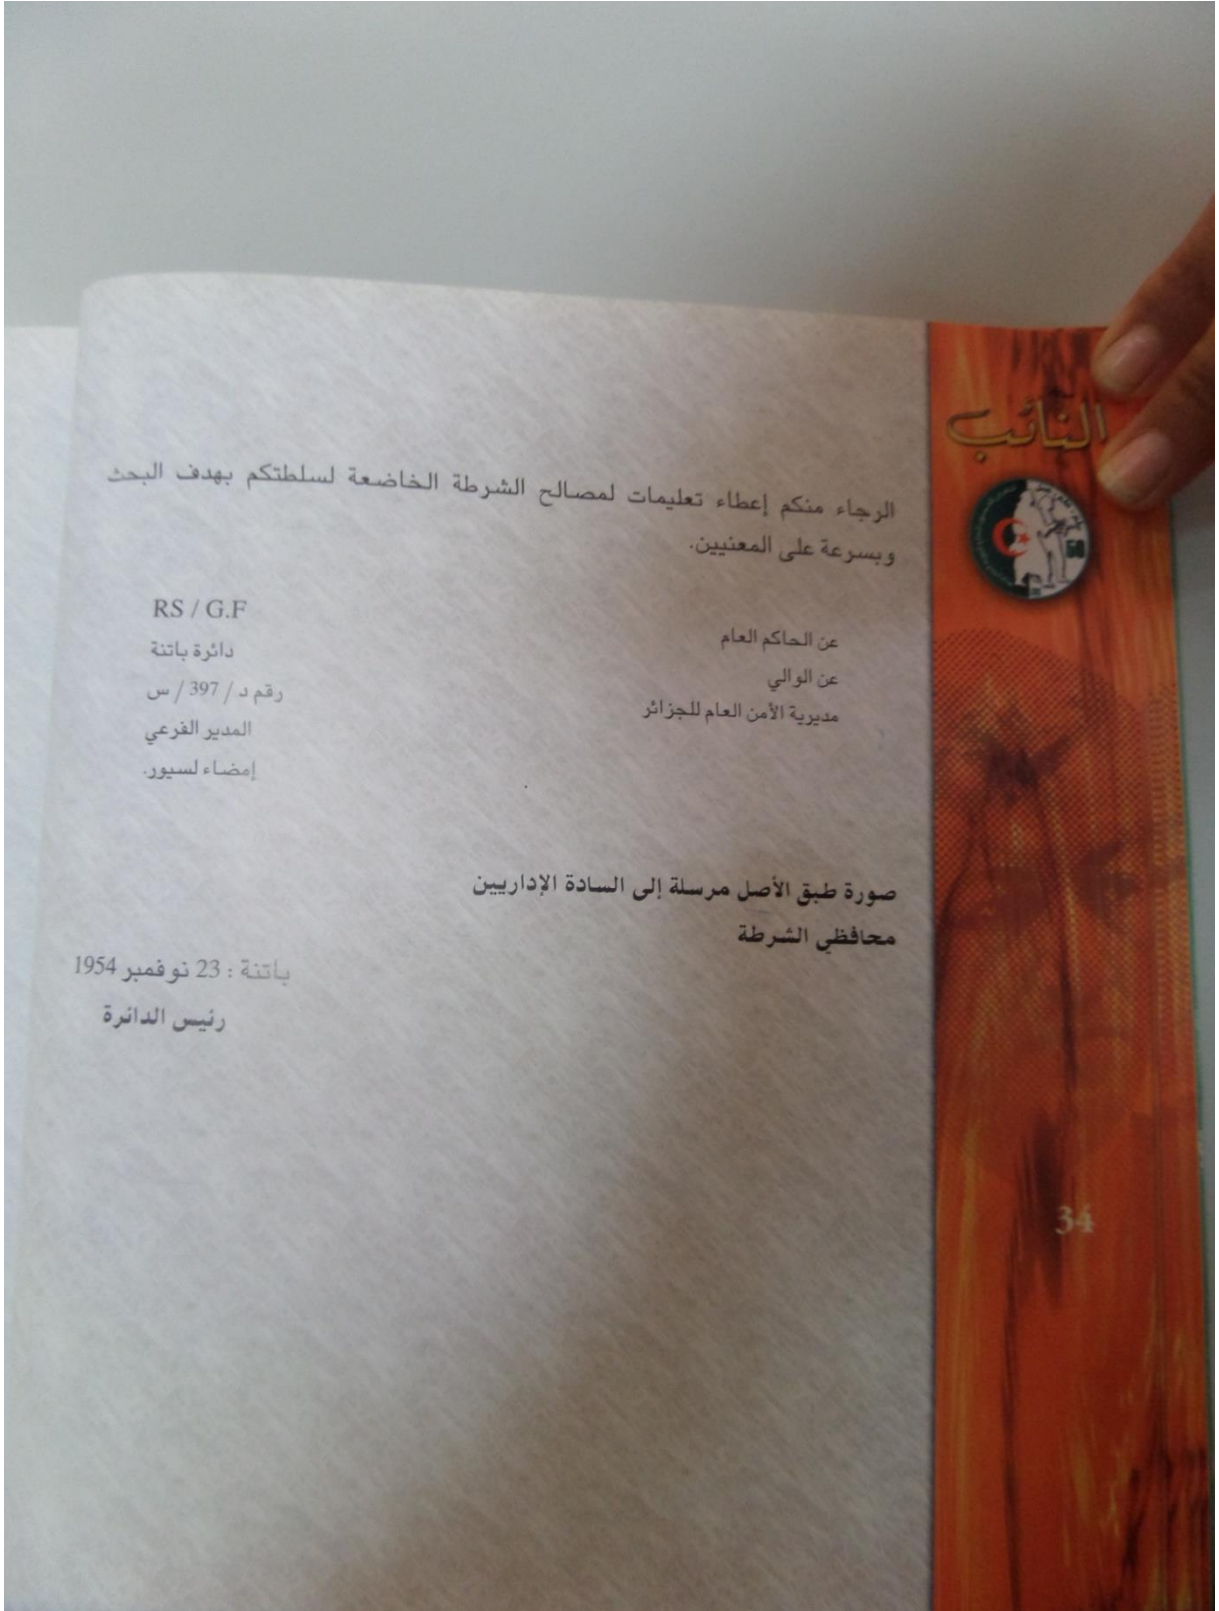 النائب
50
الرجاء منكم إعطاء تعليمات لمصالح الشرطة الخاضعة لسلطتكم بهدف البحث
وبسرعة على المعنيين.
عن الحاكم العام
عن الوالي
مديرية الأمن العام للجزائر
RS / G.F
دائرة باتنة
رقم د / 397 / س
المدير الفرعي
إمضاء لسيور.
صورة طبق الأصل مرسلة إلى السادة الإداريين
محافظي الشرطة
باتنة : 23 نوفمبر 1954
رئيس الدائرة
34